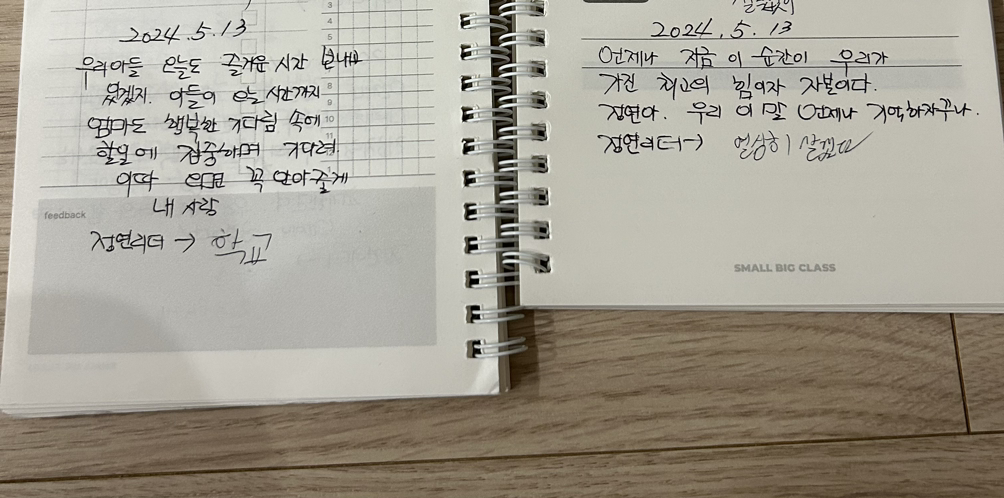 2024.5.13
우리아들 오늘도 즐거운 시간 보내고
있겠지. 아들이 오는 시간까지
엄마도 행복한 기다림 속에
할일에 집중하며 기다려.
이따 오면 꼭 안아줄게
내 사랑
feedback
정연리더 → 학교
3
4
5
8
9
10
11
2024.5.13
언제나 지금 이 순간이 우리가
가진 최고의 힘이자 자본이다.
정연아. 우리 이 말 언제나 기억하자꾸나.
정연리더 → 열심히 살겠다
SMALL BIG CLASS